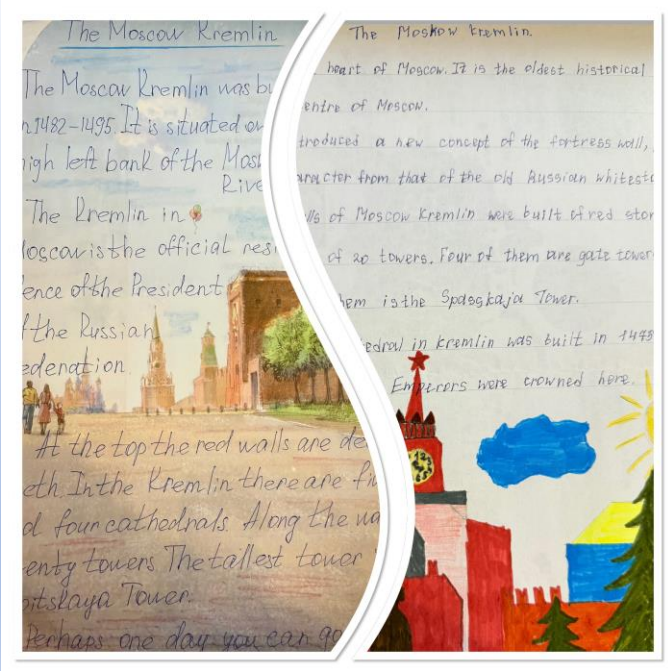 The Moscow Kremlin
The Moscow Kremlin was bu
n 1482-1495. It is situated on
igh left bank of the Mosk
River
The Kremlin in
Moscow is the official resi
ence of the President
f the Russian
ederation.
At the top the red walls are de
eth In the Kremlin there are fi
d four cathedrals Along the wa
enty towers The tallest tower
oitskaya Tower.
Perhaps one day you can go
The Moskow Kremlin.
heart of Moscow. It is the oldest historical
entre of Moscow.
troduced a new concept of the fortress wall,
aracter from that of the old Russian whitesto
lls of Moscow Kremlin were built of red ston
of 20 towers. Four of them are gate tower
hem is the Spasskaja Tower.
edral in Kremlin was built in 1475
Emperors were crowned here.